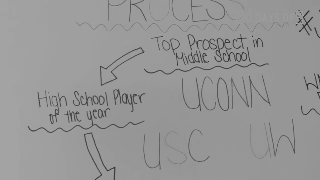 PROCESS
Top Prospect in
Middle School
High School Player
of the year
UCONN
USC UW